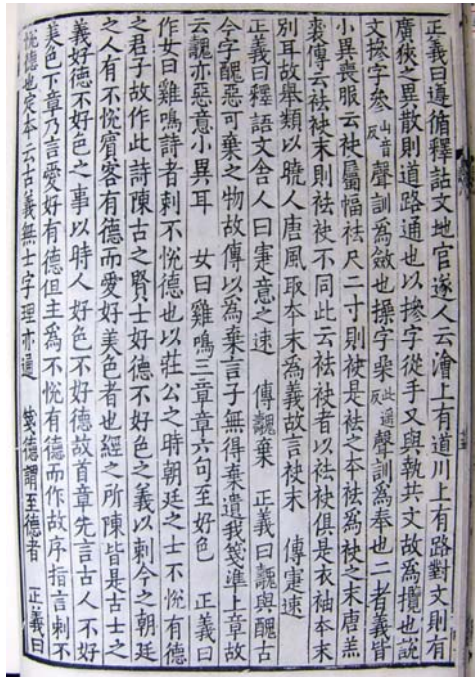 正義曰遵循釋詁文地官遂人云澮上有道川上有路對文則有
廣狹之異散則道路通也以摻字從手又與執共文故爲攬也說
文摻字參山音反聲訓爲斂也操字喿此遥反聲訓爲奉也二者義皆
小異喪服云袂屬幅袪尺二寸則袂是袪之本袪爲袂之末唐羔
裘傳云袪袂末則袪袂不同此云袪袂者以袪袂俱是衣袖本末
別耳故舉類以曉人唐風取本末爲義故言袂末　傳寁速
正義曰釋語文舍人曰寁意之速　傳魗棄　正義曰魗與醜古
今字醜惡可棄之物故傳以爲棄言子無得棄遺我箋準上章故
云魗亦惡意小異耳　女曰雞鳴三章章六句至好色　正義曰
作女曰雞鳴詩者刺不悅德也以莊公之時朝廷之士不悅有德
之君子故作此詩陳古之賢士好德不好色之義以刺今之朝廷
之人有不悅賓客有德而愛好美色者也經之所陳皆是古士之
義好德不好色之事以時人好色不好德故首章先言古人不好
美色下章乃言愛好有德但主爲不悅有德而作故序指言刺不
悅德也定本云古義無士字理亦通　箋德謂至德者　正義曰